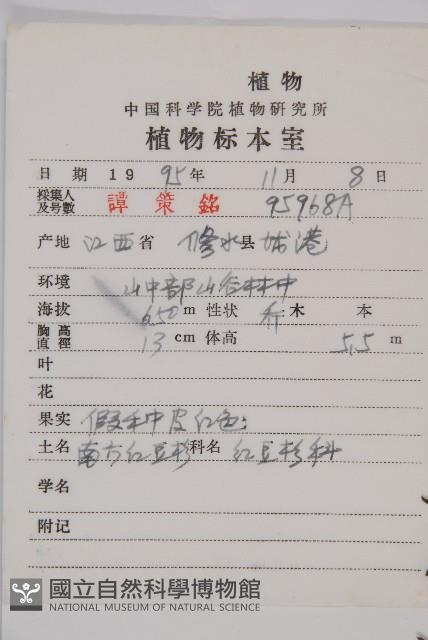 植物
中国科学院植物研究所
植物标本室
日期 19 95年 11月 8日
採集人及号數 譚策銘 95968A
产地 江西省 修水县 城港
环境 山中部山谷林中
海拔 650 m 性状 乔木 本
胸高直徑 13 cm 体高 5.5 m
叶
花
果实 假种皮红色;
土名 南方红豆杉 科名 红豆杉科
学名
附记
國立自然科學博物館
NATIONAL MUSEUM OF NATURAL SCIENCE